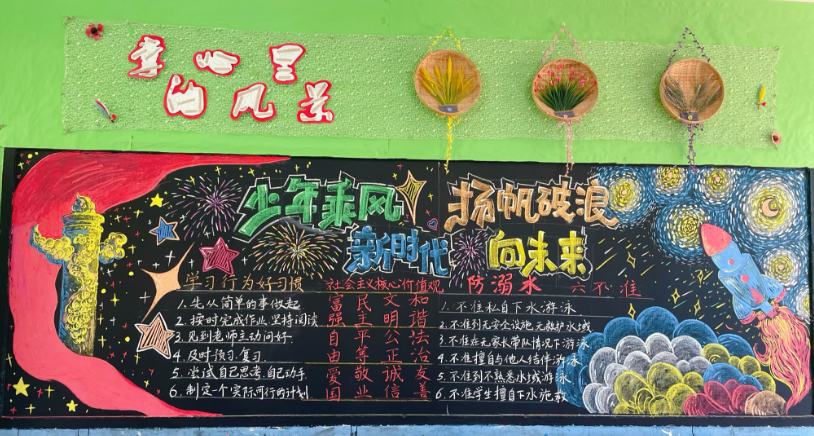 童心里
的风景
少年乘风
扬帆破浪
新时代
向未来
学习行为好习惯
1.先从简单的事做起
2.按时完成作业,坚持阅读
3.见到老师主动问好
4.及时预习.复习.
5.尝试自己思考,自己动手.
6.制定一个实际可行的计划
社会主义核心价值观
富民文和
强主明谐
自平公法
由等正治
爱敬诚友
国业信善
防溺水 六不准
1.不准私自下水游泳
2.不准到无安全设施.无救护水域
3.不准在无家长带队情况下游泳
4.不准擅自与他人结伴游泳
5.不准到不熟悉水域游泳
6.不准学生擅自下水施救